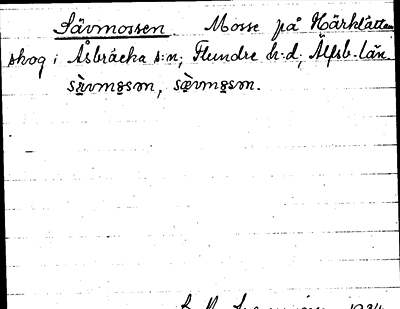 Sävmossen Mosse på Härklätten
skog i Åsbräcka s:n, Flundre h:d, Älfsb. län.
sàvmosn, sæ̀vmosn.
1934